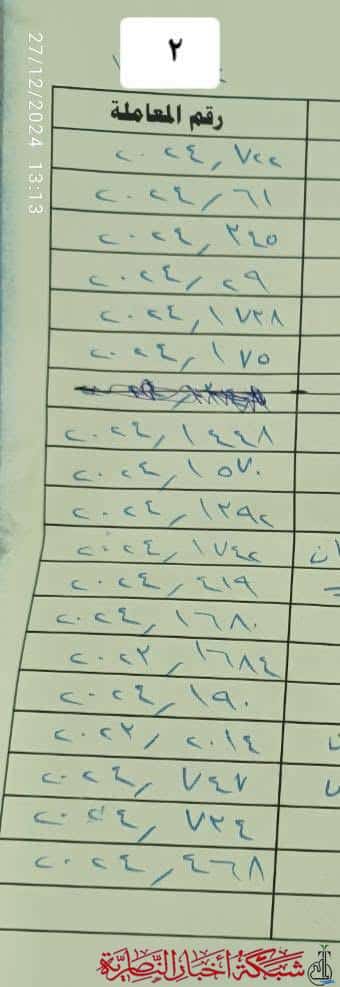 ٢
27/12/2024 13:13
رقم المعاملة
٢٠٢٤/٧٢٢
٢٠٢٤/٦١
٢٠٢٤/٣٤٥
٢٠٢٤/٢٩
٢٠٢٤/١٧٣٨
٢٠٢٤/١٧٥
٢٠٢٤/١٤٤٨
٢٠٢٤/١٥٧٠
٢٠٢٤/١٣٩٢
٢٠٢٤/١٧٤٢
٢٠٢٤/٤١٩
٢٠٢٤/١٦٨٠
٢٠٢٣/١٦٨٤
٢٠٢٤/١٩٠
٢٠٢٣/٢٠١٤
٢٠٢٤/٧٤٧
٢٠٢٤/٧٣٤
٢٠٢٤/٤٦٨
شبكة أخبار الناصرية